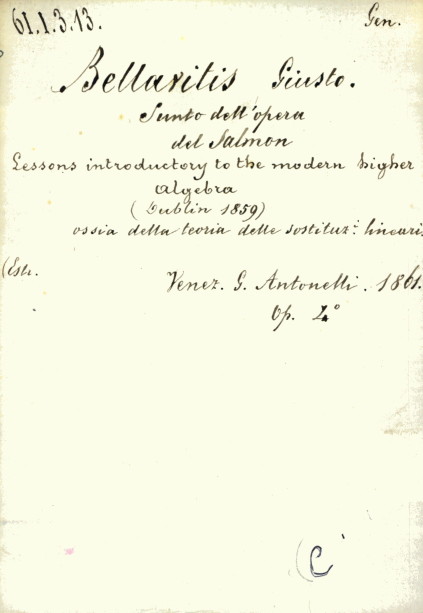 61.1.3.13.
Gen.
Bellavitis Giusto.
Sunto dell'opera
del Salmon
Lessons introductory to the modern higher
algebra
(Dublin 1859)
ossia della teoria delle sostituz.i lineari.
(Estr.
Venez. G. Antonelli. 1861.
Op. 4°
(C